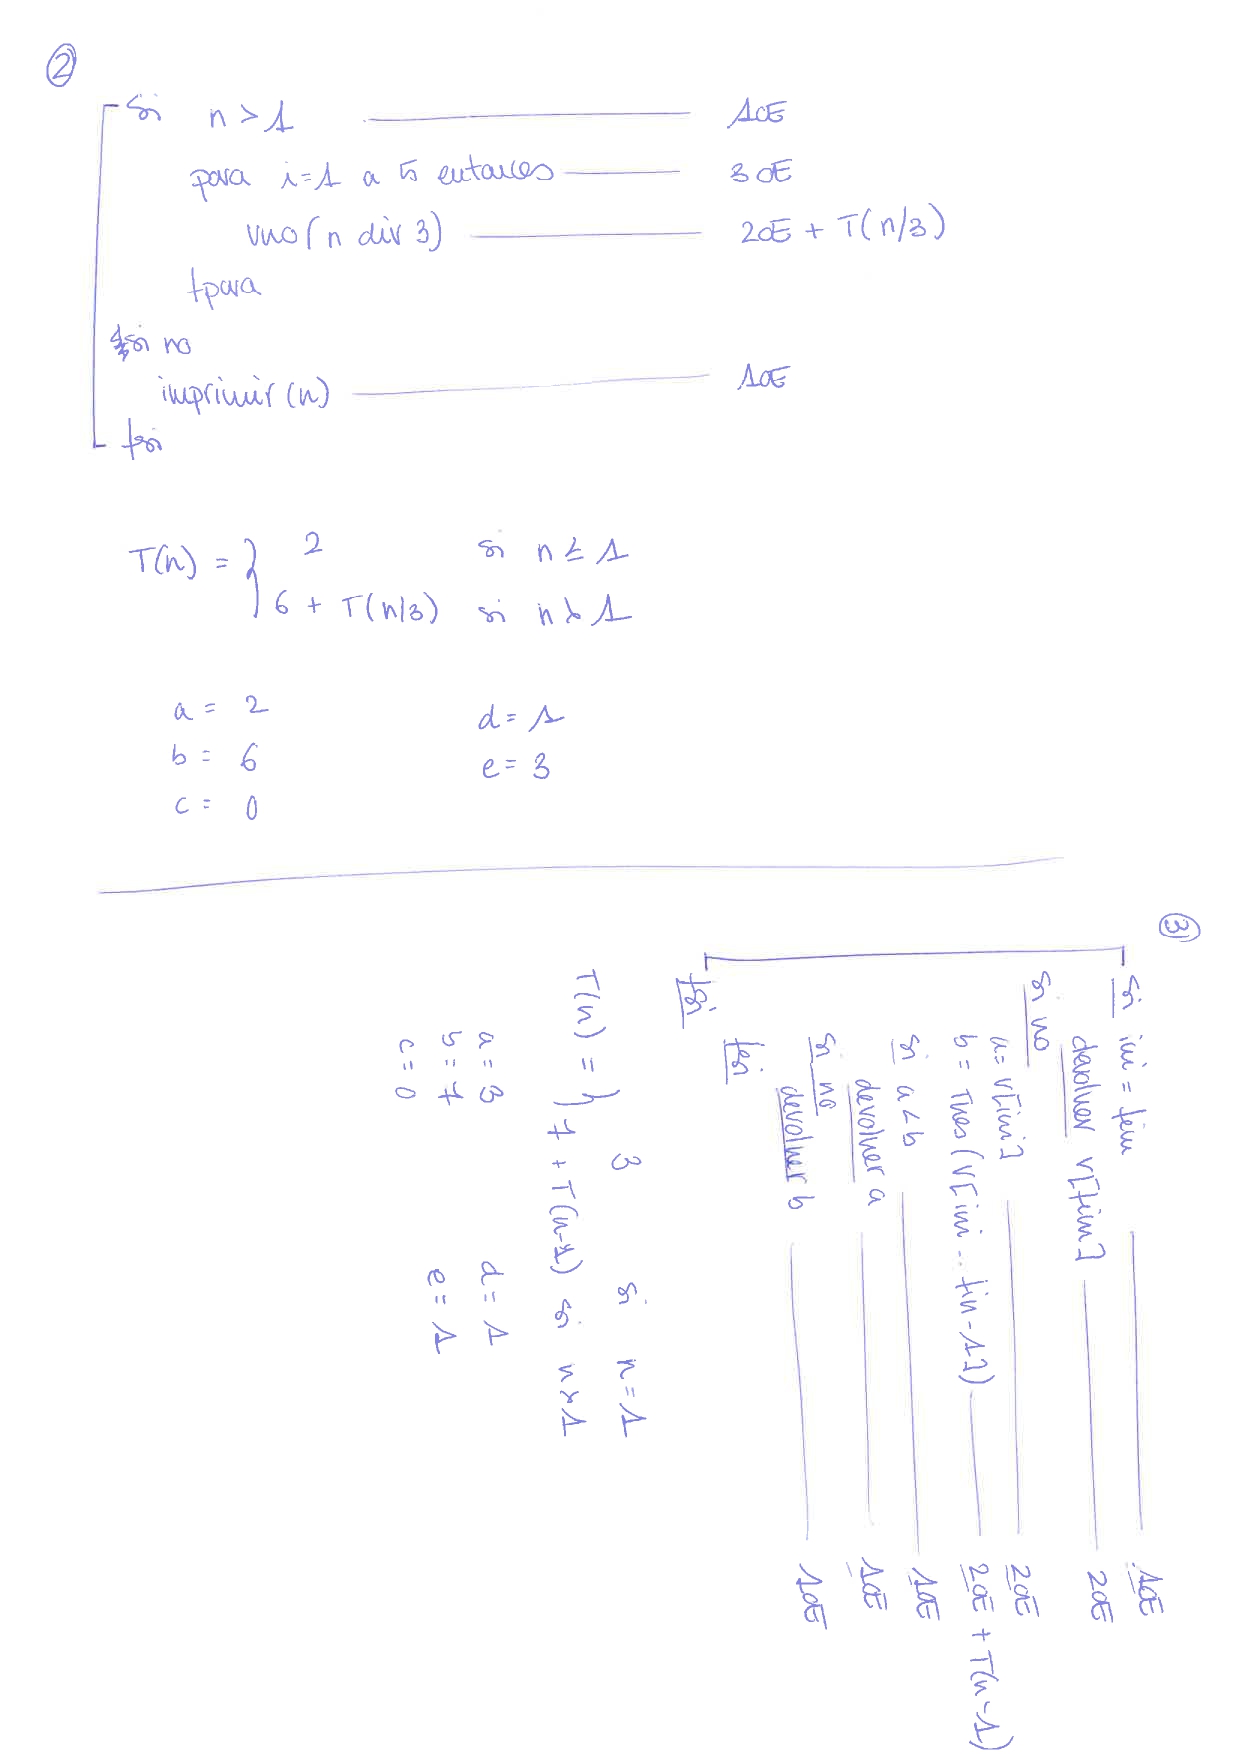 2
Si n > 1 1OE
para i=1 a 5 entonces 3 OE
uno(n div 3) 2OE + T(n/3)
fpara
si no
imprimir (n) 1OE
fsi
T(n) = } 2 si n ≤ 1
6 + T(n/3) si n > 1
a = 2 d = 1
b = 6 e = 3
c = 0
3
Si ini = fin 1OE
devolver v[fin] 2OE
si no
a = v[ini] 2OE
b = Tres (v[ini .. fin-1]) 2OE + T(n-1)
si a < b 1OE
devolver a 1OE
si no
devolver b 1OE
fsi
fsi
T(n) = } 3 si n = 1
7 + T(n-1) si n > 1
a = 3 d = 1
b = 7 e = 1
c = 0